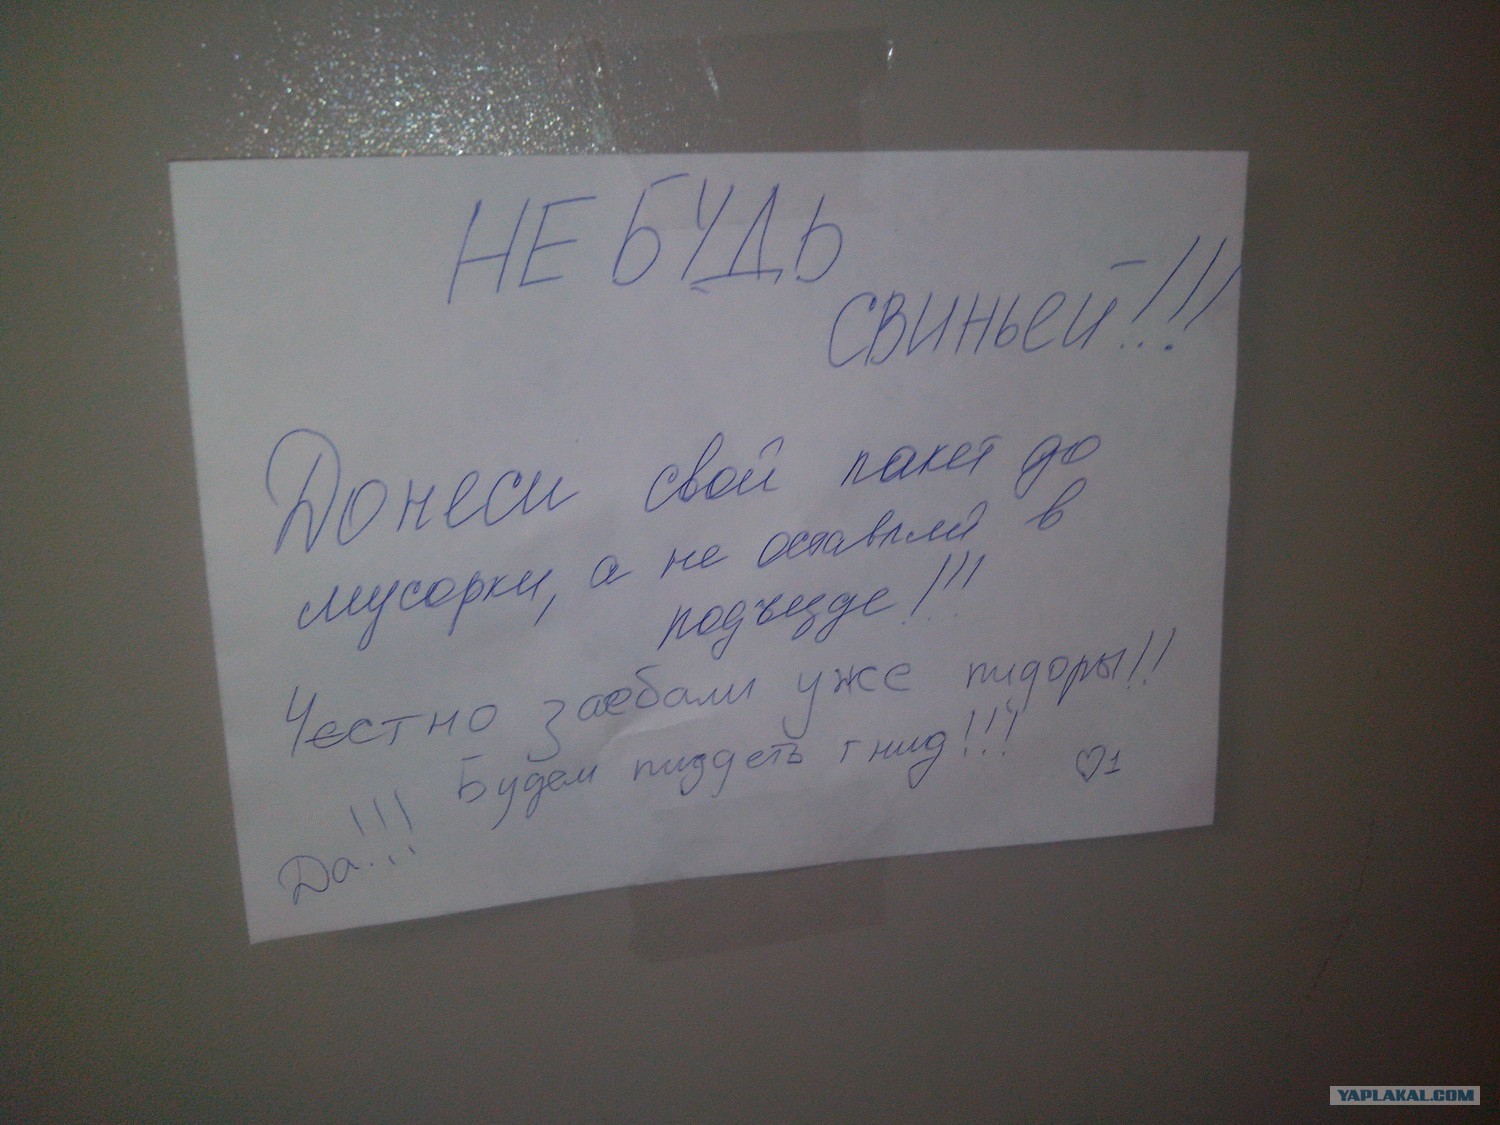 НЕ БУДЬ
СВИНЬЕЙ!!!
Донеси свой пакет до
мусорки, а не оставляй в
подъезде!!!
Честно заебали уже пидоры!!!
Будем пиздеть гнид!!!
♡1
Да!!!
YAPLAKAL.COM